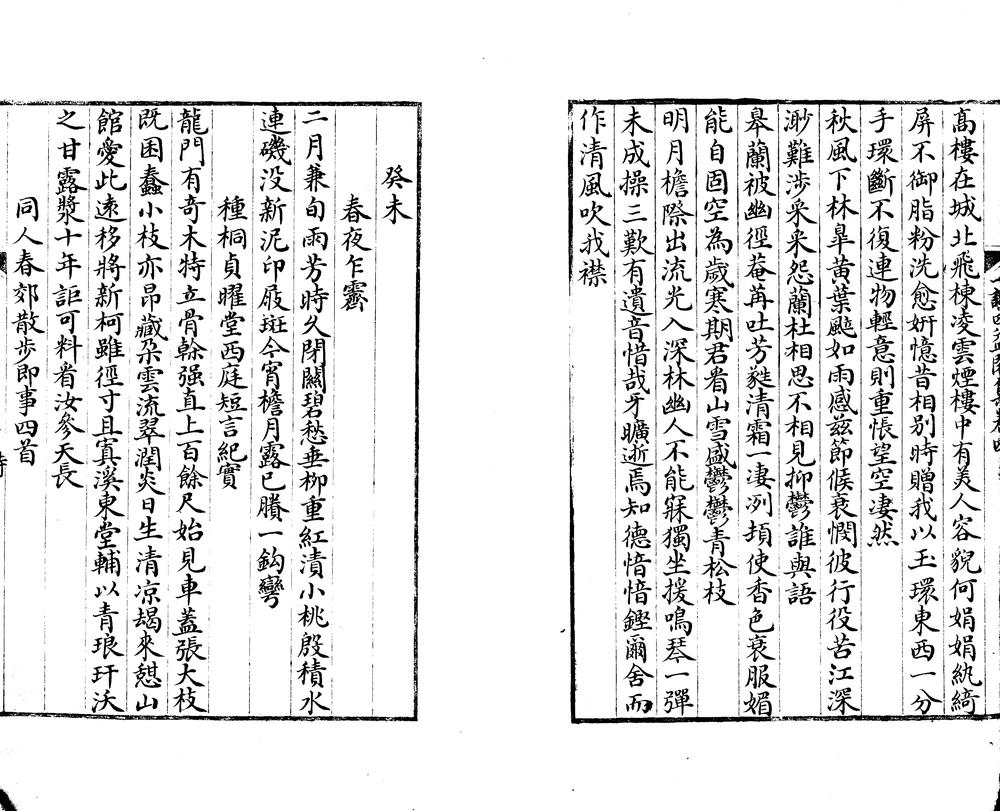 高樓在城北飛棟凌雲煙樓中有美人容貌何娟娟紈綺
屏不御脂粉洗愈妍憶昔相別時贈我以玉環東西一分
手環斷不復連物輕意則重悵望空淒然
秋風下林皋黃葉颭如雨感茲節候衰憫彼行役苦江深
渺難涉采采怨蘭杜相思不相見抑鬱誰與語
皋蘭被幽徑菴苒吐芳蕤清霜一淒冽頓使香色衰服媚
能自固空為歲寒期君看山雪盛鬱鬱青松枝
明月檐際出流光入深林幽人不能寐獨坐援鳴琴一彈
未成操三歎有遺音惜哉牙曠逝焉知德愔愔鏗爾舍而
作清風吹我襟
癸未
春夜乍霽
二月兼旬雨芳時久閉關碧愁垂柳重紅漬小桃殷積水
連磯没新泥印屐斑今宵檐月露已賸一鈎彎
種桐貞曜堂西庭短言紀實
龍門有奇木特立骨榦强直上百餘尺始見車蓋張大枝
既困蠢小枝亦昂藏朶雲流翠潤炎日生清凉朅來憇山
館愛此遠移將新柯雖徑寸且寘溪東堂輔以青琅玕沃
之甘露漿十年詎可料看汝參天長
同人春郊散步即事四首